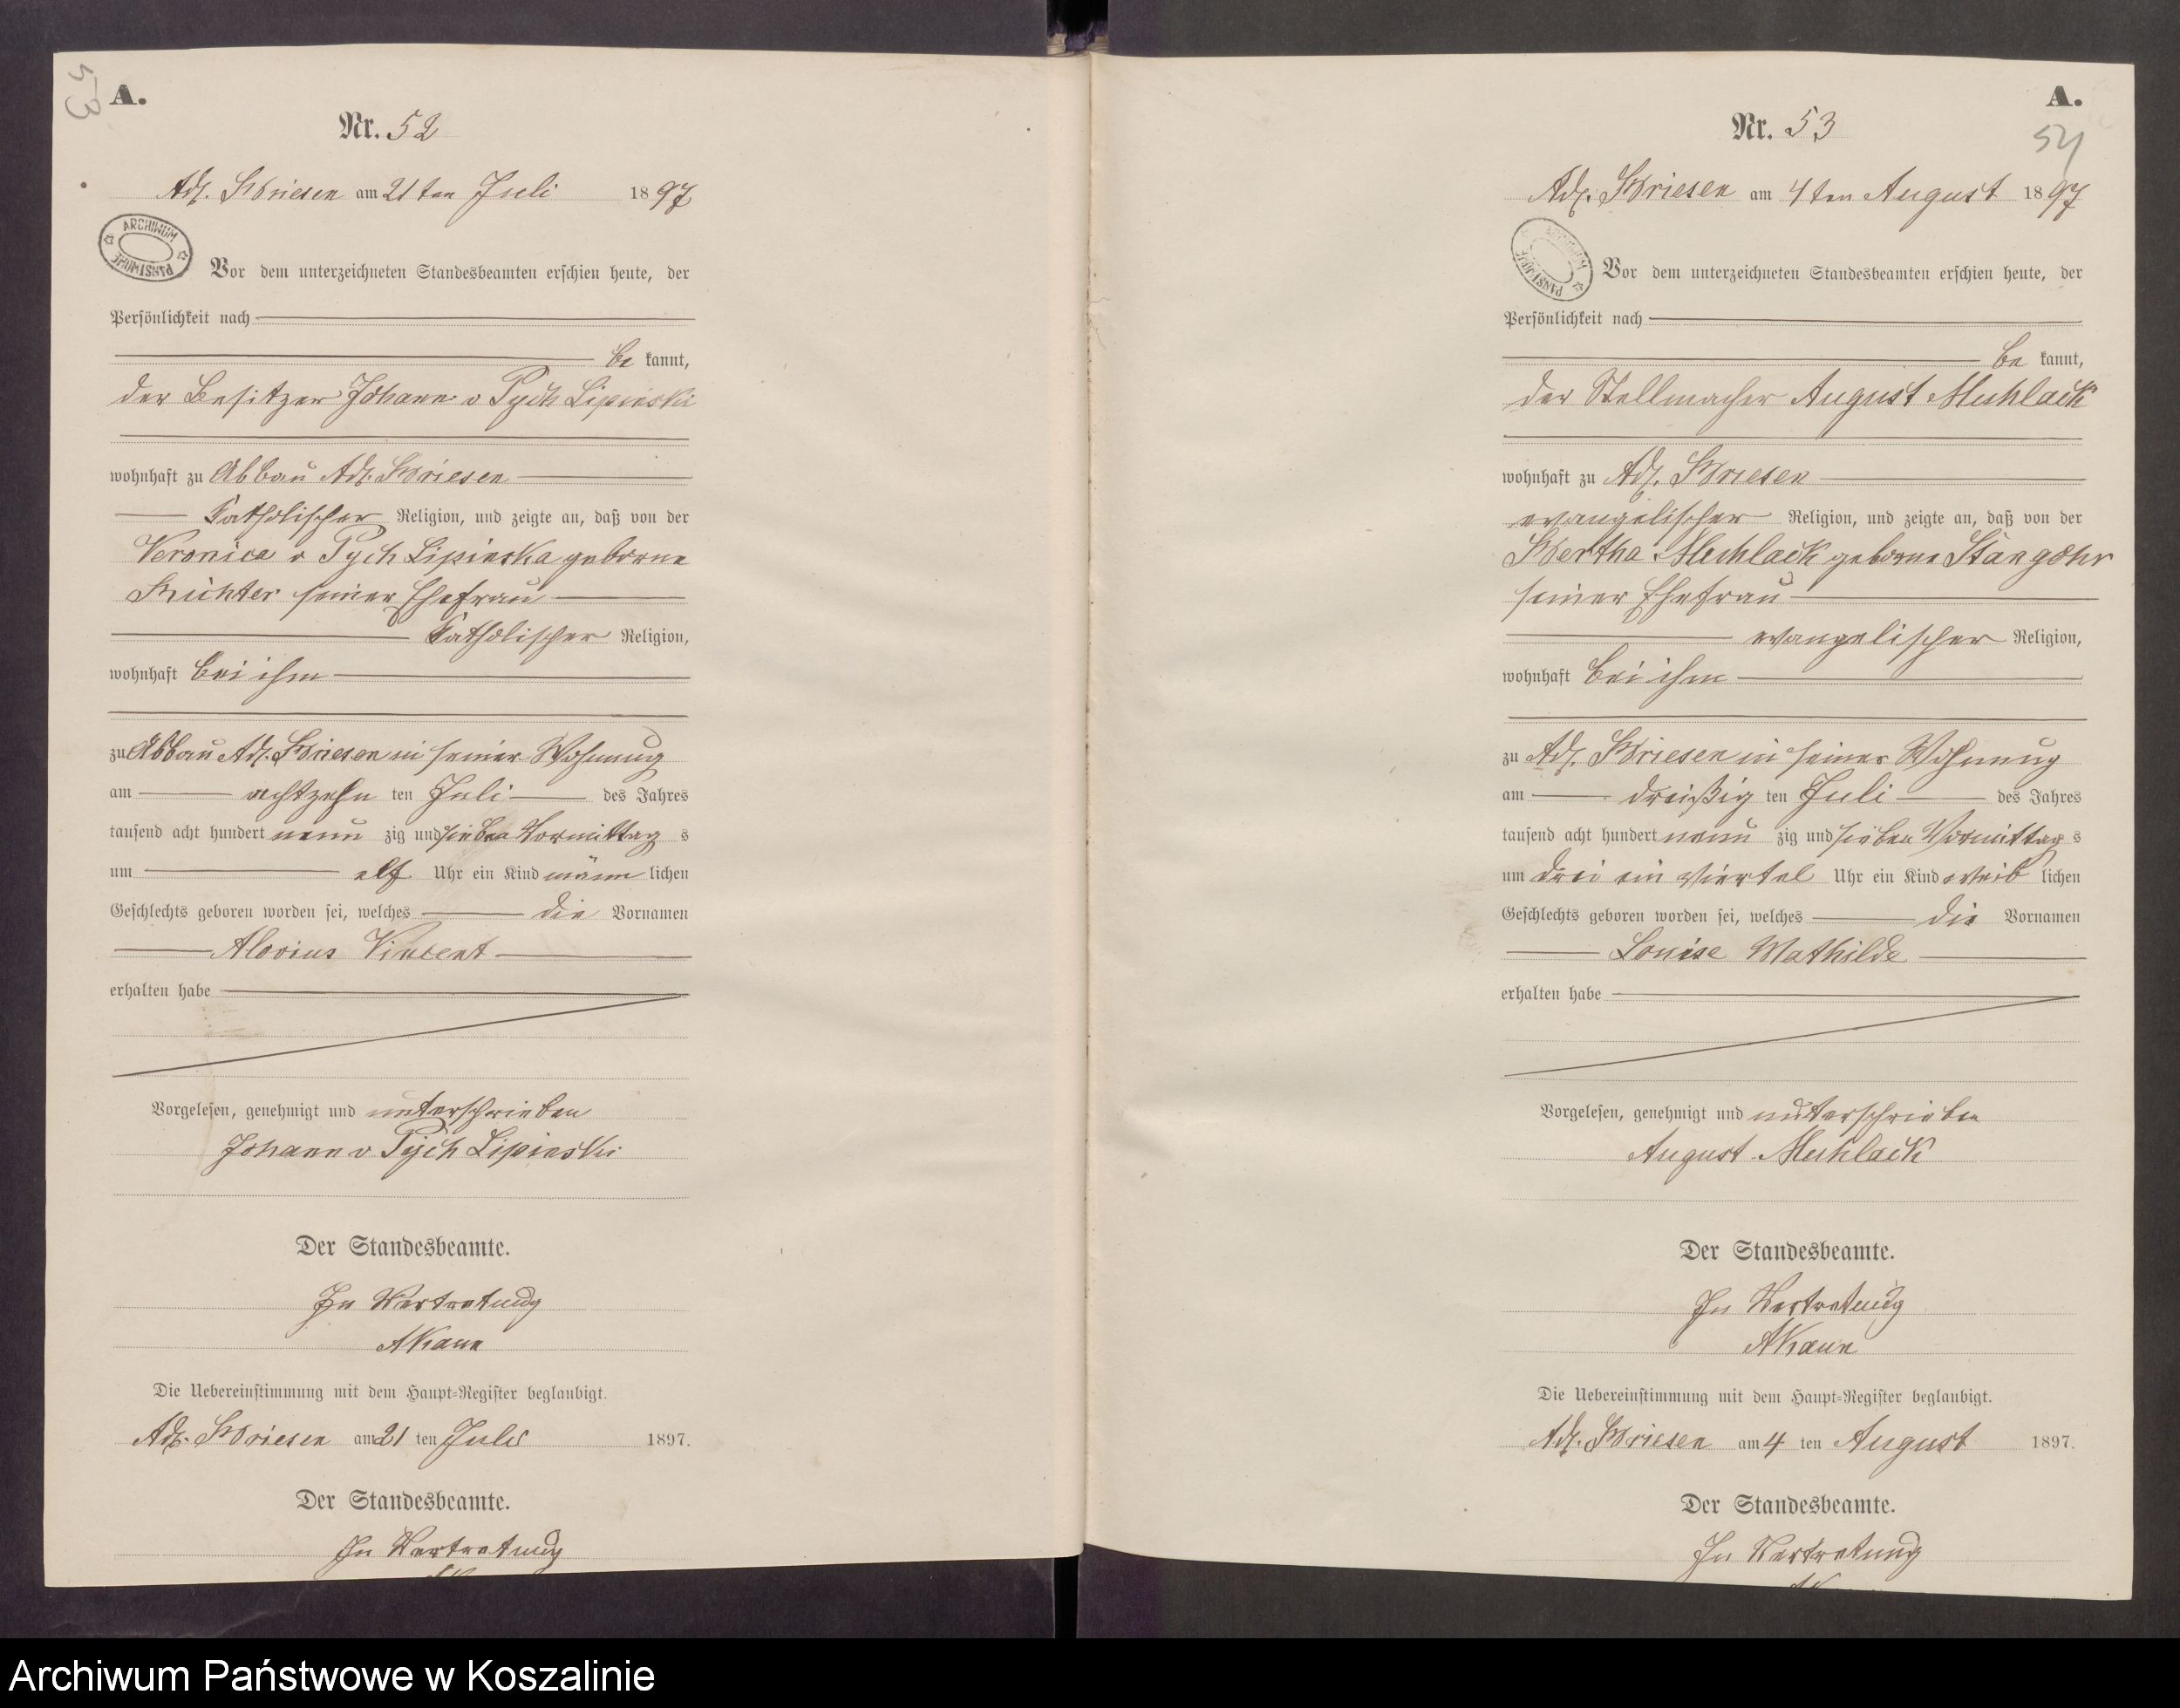 53
A.
Nr. 52
Adl. Briesen am 21 ten Juli 1897
ARCHIWUM PAŃSTWOWE
Vor dem unterzeichneten Standesbeamten erschien heute, der
Persönlichkeit nach
be kannt,
der Besitzer Johann v Pych Lipinski
wohnhaft zu Abbau Adl. Briesen
katholischer Religion, und zeigte an, daß von der
Veronica v Pych Lipinska geborene
Richter seiner Ehefrau
katholischer Religion,
wohnhaft bei ihm
zu Abbau Adl. Briesen in seiner Wohnung
am achtzehn ten Juli des Jahres
tausend acht hundert neun zig und sieben Vormittag s
um elf Uhr ein Kind männ lichen
Geschlechts geboren worden sei, welches die Vornamen
Aloisius Vincent
erhalten habe
Vorgelesen, genehmigt und unterschrieben
Johann v Pych Lipinski
Der Standesbeamte.
In Vertretung
AKann
Die Uebereinstimmung mit dem Haupt-Register beglaubigt.
Adl. Briesen am 21 ten Juli 1897.
Der Standesbeamte.
In Vertretung
A.
Nr. 53
54
Adl. Briesen am 4 ten August 1897
ARCHIWUM PAŃSTWOWE
Vor dem unterzeichneten Standesbeamten erschien heute, der
Persönlichkeit nach
be kannt,
der Stellmacher August Muhlack
wohnhaft zu Adl. Briesen
evangelischer Religion, und zeigte an, daß von der
Bertha Muhlack geborne
seiner Ehefrau
evangelischer Religion,
wohnhaft bei ihm
zu Adl. Briesen in seiner Wohnung
am dreißig ten Juli des Jahres
tausend acht hundert neun zig und sieben Vormittag s
um drei ein viertel Uhr ein Kind weib lichen
Geschlechts geboren worden sei, welches die Vornamen
Louise Mathilde
erhalten habe
Vorgelesen, genehmigt und unterschrieben
August Muhlack
Der Standesbeamte.
In Vertretung
AKann
Die Uebereinstimmung mit dem Haupt-Register beglaubigt.
Adl. Briesen am 4 ten August 1897.
Der Standesbeamte.
In Vertretung
Archiwum Państwowe w Koszalinie